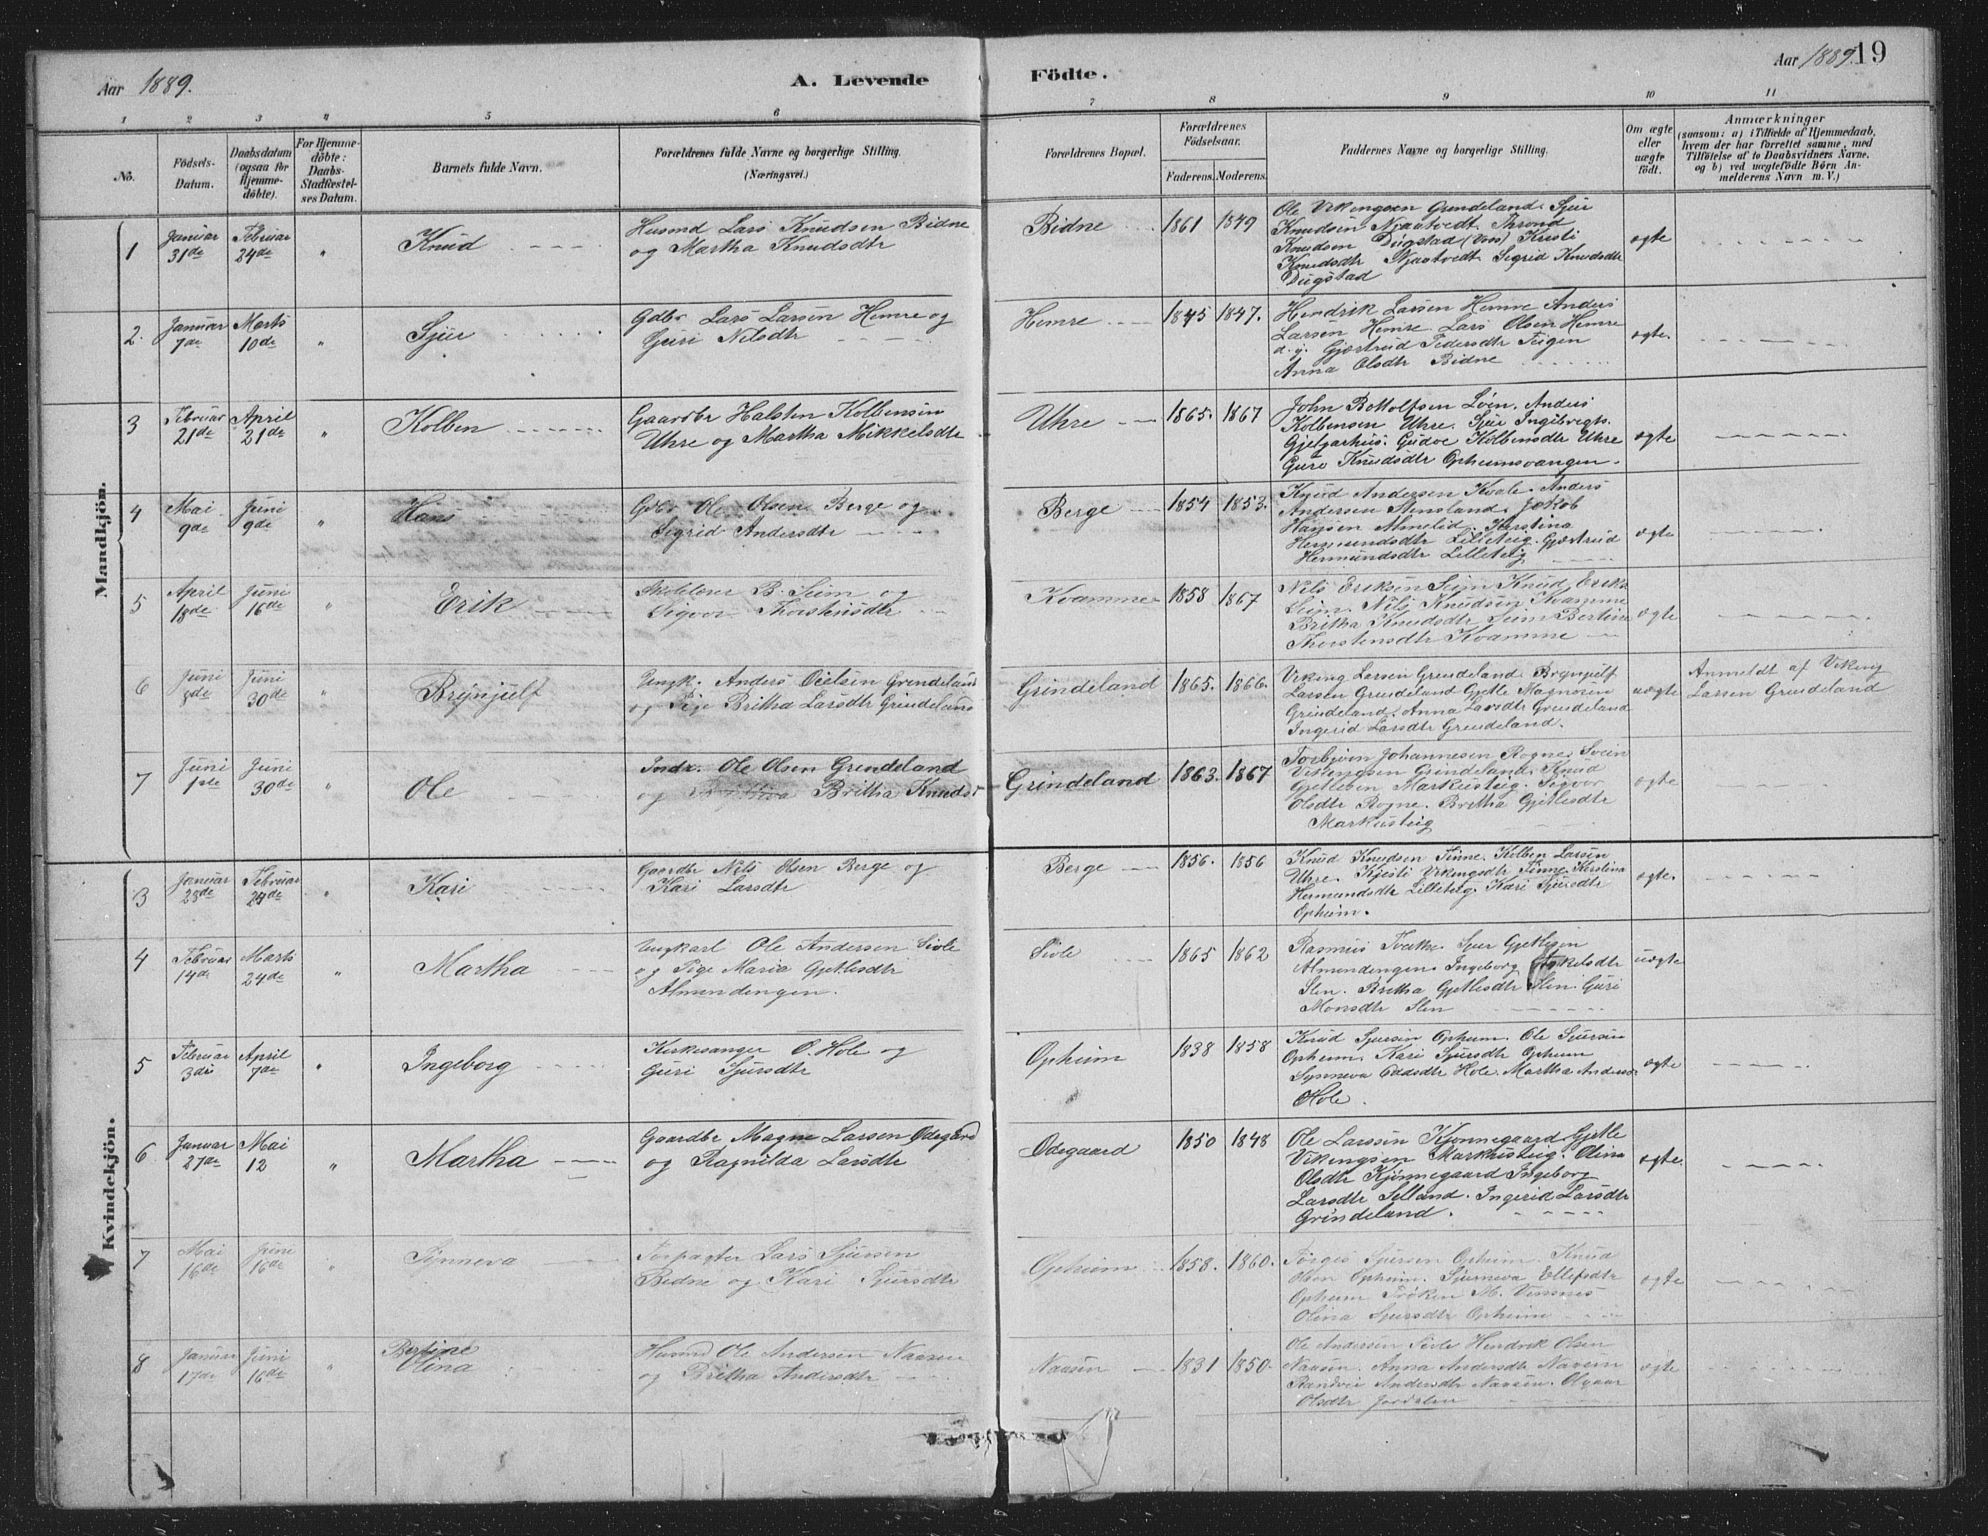 Aar 1889.
A. Levende
Födte.
Aar 1889. 19
1 2 3 4 5 6 7 8 9 10 11
No.
Födsels-Datum.
Daabsdatum (ogsaa for Hjemmedöbte).
For Hjemmedöbte: Daabs-Stadfæstelses Datum.
Barnets fulde Navn.
Forældrenes fulde Navne og borgerlige Stilling.
(Næringsvei.)
Forældrenes Bopæl.
Forældrenes Födselsaar.
Faderens. Moderens.
Faddernes Navne og borgerlige Stilling.
Om ægte eller uægte födt.
Anmærkninger
(saasom: a) i Tilfælde af Hjemmedaab, hvem der har forrettet samme, med Tilföielse af to Daabsvidners Navne, og b) ved uægtefödte Börn Anmelderens Navn m. V.)
Mandkjön.
1 Januar 31de Februar 24de " Knud
Husmd Lars Knudsen Bidne
og Martha Knudsdtr
Bidne 1861 1849
Ole Vikingsen Grindeland. Sjur
Knudsen Njaatvedt. Thrond
Knudsen Dugstad (Vos) Kristi
Knudsdtr Njaatvedt. Sigrid Knudsdtr
Dugstad
ægte
2. Januar 7de Marts 10de " Sjur
Gdbr Lars Larsen Hemre og
Guri Nilsdtr
Hemre 1845 1847.
Hendrik Larsen Hemre Anders
Larsen Hemre Lars Olsen Hemre
d. y. Gjærtrud Pedersdtr Teigen
Anna Olsdtr Bidne
ægte
3 Februar 21de April 21de " Kolben
Gaardbr Halsten Kolbensen
Uhre og Martha Mikkelsdtr
Uhre 1865. 1867
John Bottolfsen Löen. Anders
Kolbensen Uhre. Sjur Ingebregts.
Gjelgarhus. Gudve Kolbensdtr Uhre
Guro Knudsdtr Opheimsvangen.
ægte
4 Mai 9de Juni 9de " Hans
Gdbr Ole Olsen Berge og
Sigrid Andersdtr
Berge 1854 1853.
Knud Andersen Kvale. Anders
Andersen Stensland. Jakob
Hansen Almelid. Kerstina
Hermundsdtr Lilleteig. Gjærtrud
Hermundsdtr Lilleteig
ægte
5 April 18de Juni 16de " Erik
Skolelærer B. Seim og
Sigvor Thorstensdtr
Kvamme 1858 1867
Nils Eriksen Seim Knud Eriks.
Seim. Nils Knudsen Kvamme
Britha Knudsdtr Seim Bertine
Thorstensdtr Kvamme
ægte
6 Juni 8de Juni 30de " Brynjulf
Ungk. Anders Oielsen Grindeland
og Pige Britha Larsdtr Grindeland
Grindeland 1865. 1866.
Viking Larsen Grindeland. Brynjulf
Larsen Grindeland Gjetle Magnesen
Grindeland. Anna Larsdtr Grindeland
Ingerid Larsdtr Grindeland.
uægte
Anmeldt af Viking
Larsen Grindeland
7 Juni 1ste Juni 30de " Ole
Inds. Ole Olsen Grindeland
og Britha Knudsd
Grindeland 1863. 1867
Torbjörn Johannesen Rogne. Svein
Vikingsen Grindeland. Knud
Gjetlesen Markusteig. Sigvor
Olsdtr Rogne. Britha Gjetlesdtr
Markusteig
ægte
Kvindekjön.
3 Januar 28de Februar 24de " Kari
Gaardbr Nils Olsen Berge og
Kari Larsdtr
Berge 1856. 1856
Knud Knudsen Finne. Kolben Larsen
Uhre. Kjesti Vikingsdtr Finne. Kerstina
Hermundsdtr Lilleteig. Kari Sjursdtr
Opheim.
ægte.
4 Februar 14de Marts 24de " Martha
Ungkarl Ole Andersen Sivle
og Pige Maria Gjetlesdtr
Almendingen.
Sivle 1865 1862
Rasmus Tveite. Sjur Gjetlesen
Almendingen. Ingeborg Torkelsdtr
Slen. Britha Gjetlesdtr Slen. Guri
Monsdtr Slen
uægte
5 Februar 3die April 7de " Ingeborg
Kirkesanger O. Hole og
Guri Sjursdtr
Opheim 1838 1858
Knud Sjursen Opheim. Ole Sjursen
Opheim. Kari Sjursdtr Opheim
Synneva Oddsdtr Hole. Martha Andersd.
Hole.
ægte
6 Januar 27de Mai 12 " Martha
Gaardbr Magne Larsen Ödegård
og Ragnilda Larsdtr
Ödegaard 1850 1848
Ole Larssen Kjönnegaard. Gjetle
Vikingsen Markusteig. Olina
Olsdtr Kjönnegaard Ingeborg
Larsdtr Selland. Ingerid Larsdtr
Grindeland.
ægte.
7 Mai 16de Juni 16de " Synneva
Forpagter Lars Sjursen
Bidne og Kari Sjursdtr
Opheim 1858. 1860.
Torgis Sjursen Opheim. Knud
Olsen Opheim. Synneva Ellefsdtr
Opheim Fröken M. Vinsnes
Olina Sjursdtr Opheim
ægte
8 Januar 17de Juni 16de " Bertine Olina
Husmd Ole Andersen Naasen
og Britha Andersdtr
Naasen 1831 1850.
Ole Andersen Sivle Hendrik Olsen
Naasen. Anna Andersdtr Naasen
Randvei Andersdtr Naasen. Olgaar
Olsdtr Jordalen
ægte